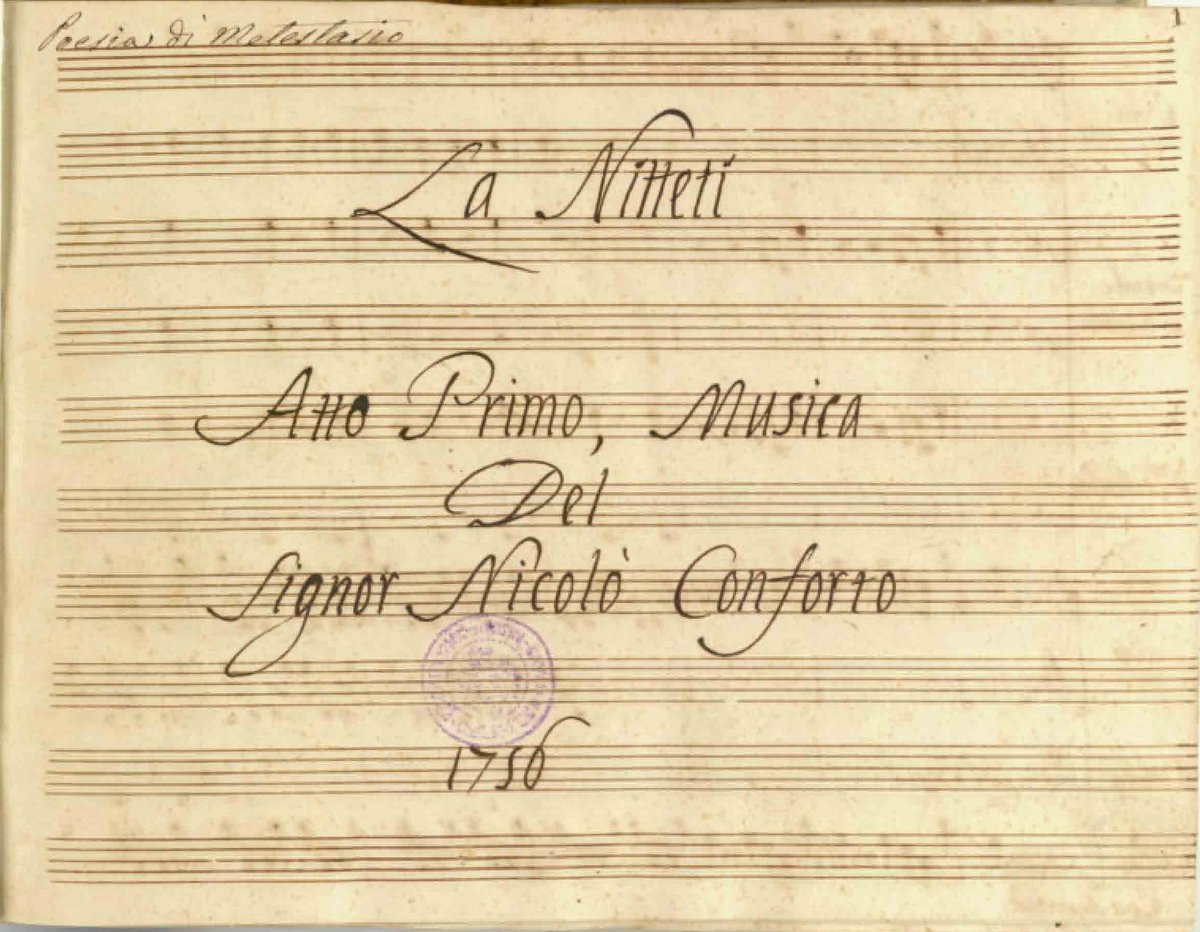 Poesia di Metestasio
1
Là Nitteti
Atto Primo, Musica
Del
Signor Nicolò Conforto
1756